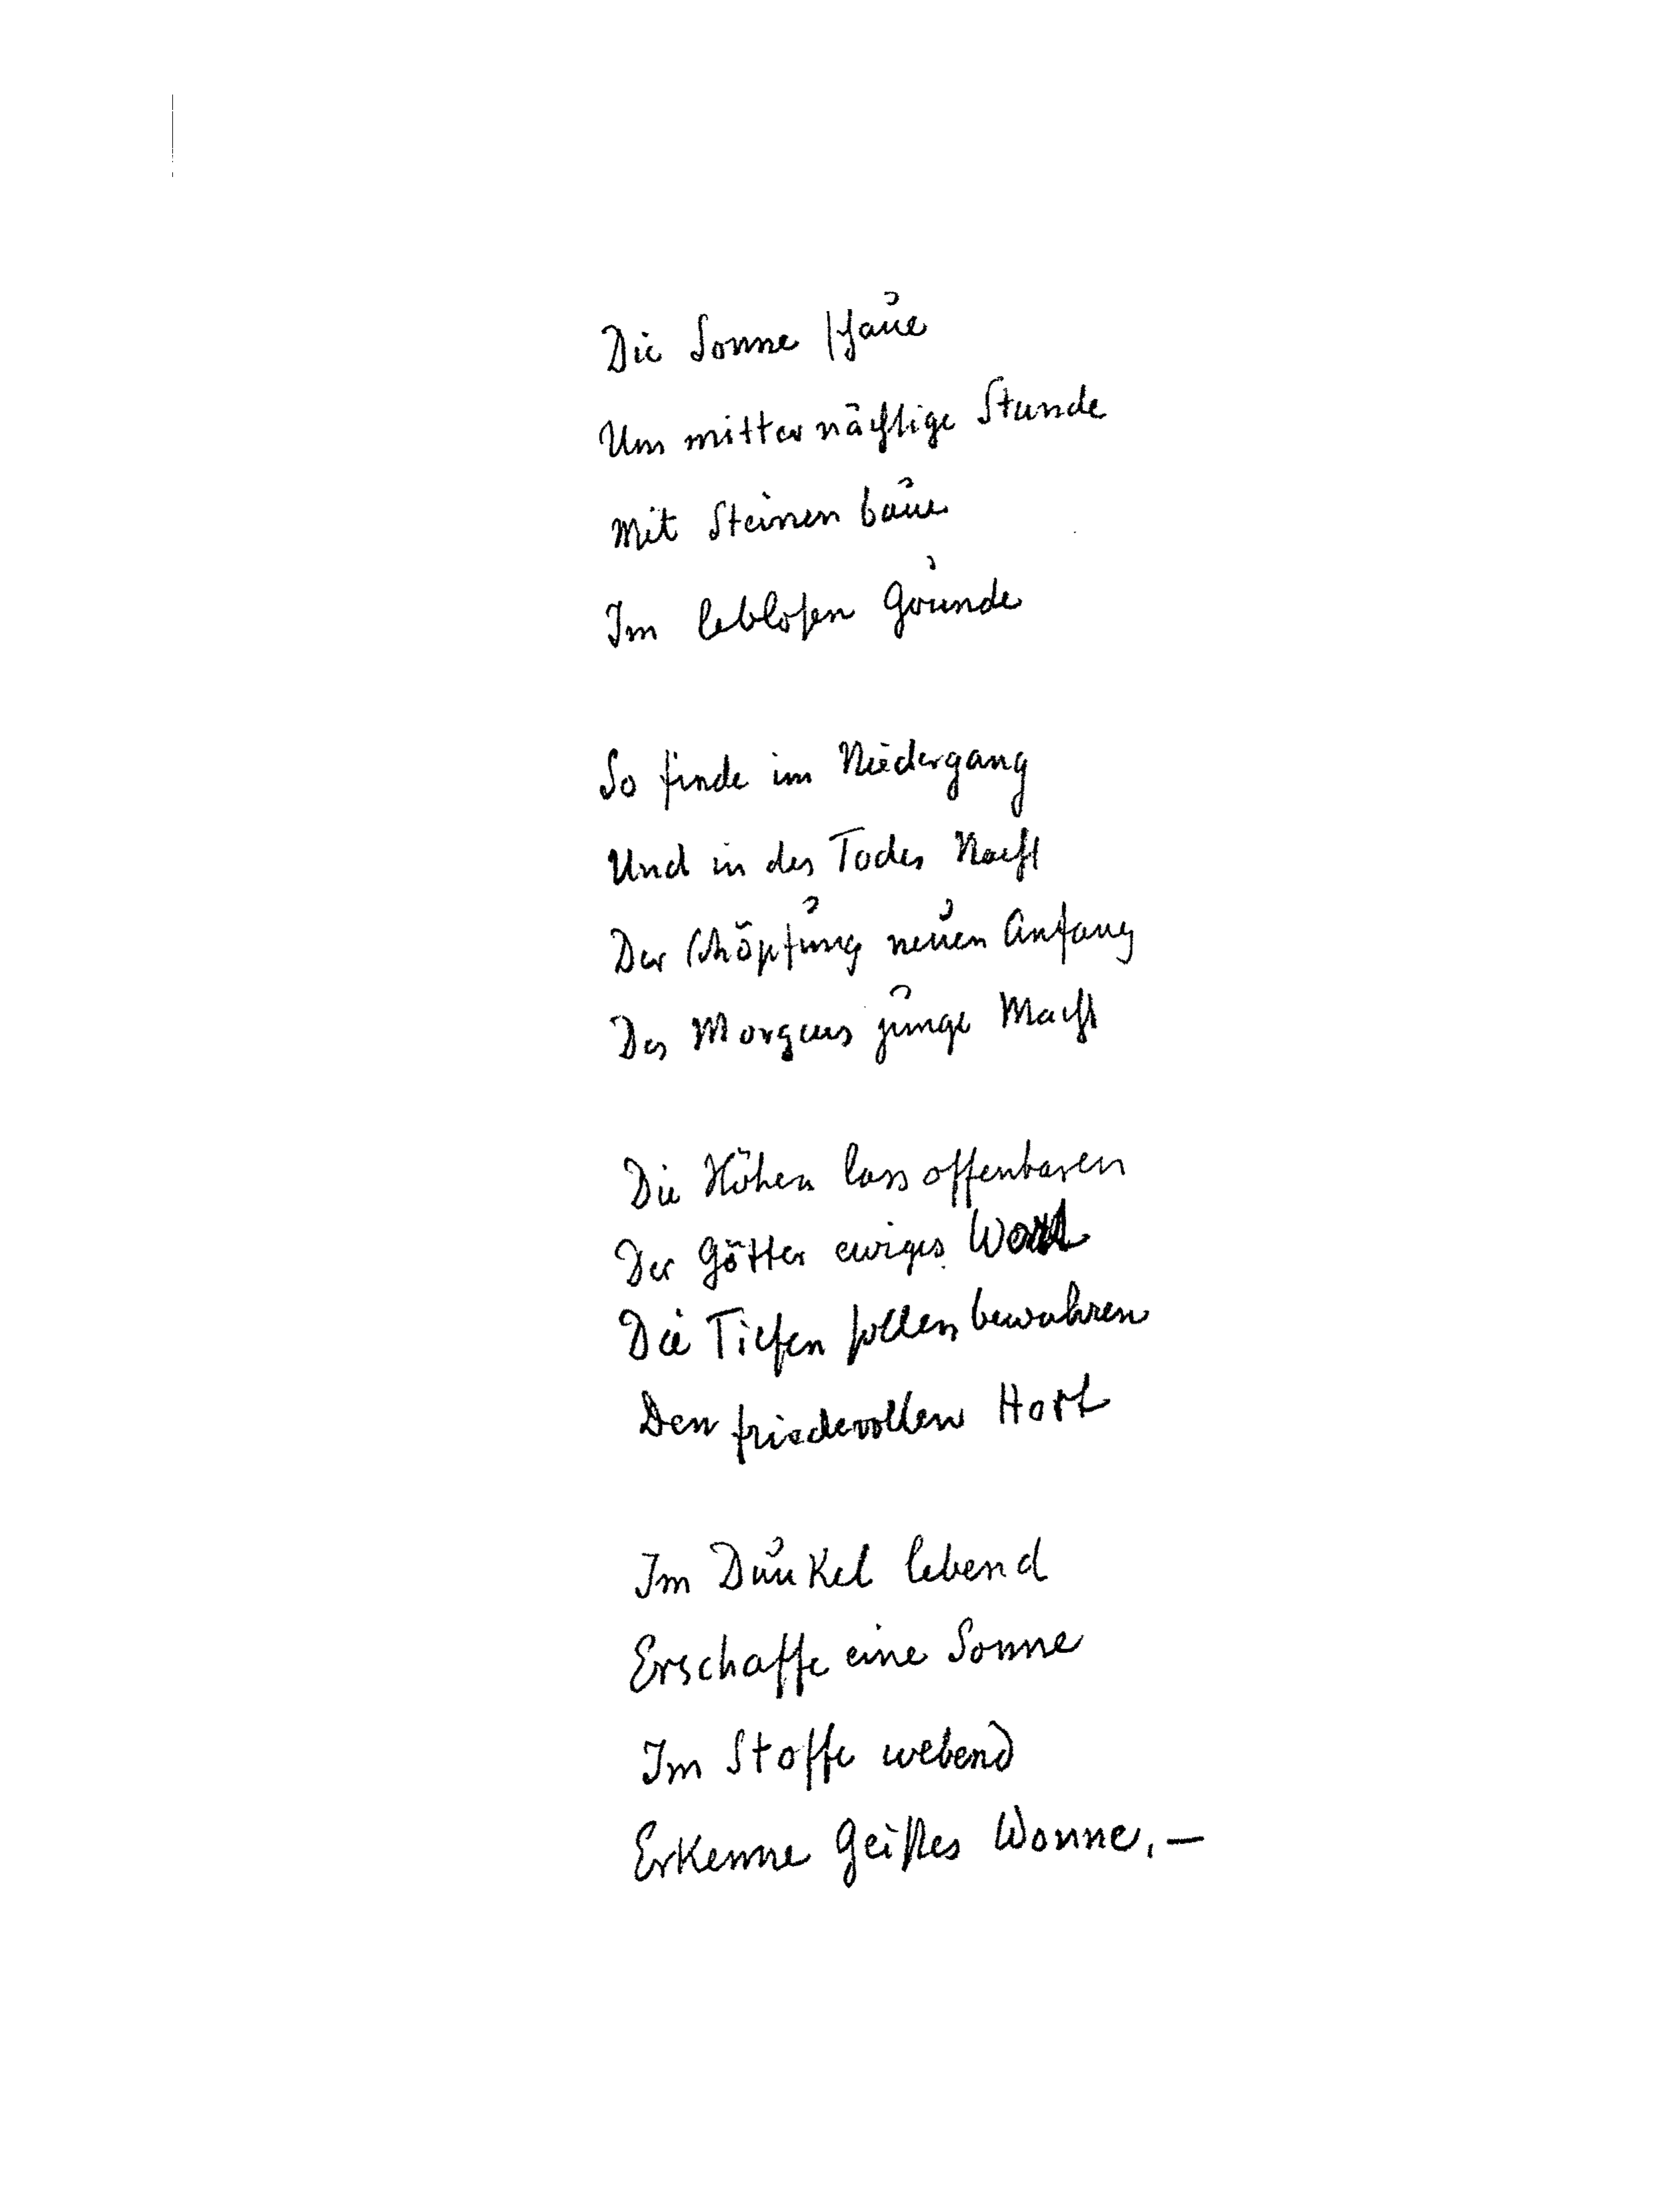 Die Sonne schaue
Um mitternächtige Stunde
Mit Steinen baue
Im leblosen Grunde
So finde im Niedergang
Und in des Todes Nacht
Der Schöpfung neuen Anfang
Des Morgens junge Macht
Die Höhen lass offenbaren
Der Götter ewiges Wort
Die Tiefen sollen bewahren
Den friedevollen Hort
Im Dunkel lebend
Erschaffe eine Sonne
Im Stoffe webend
Erkenne Geistes Wonne. —